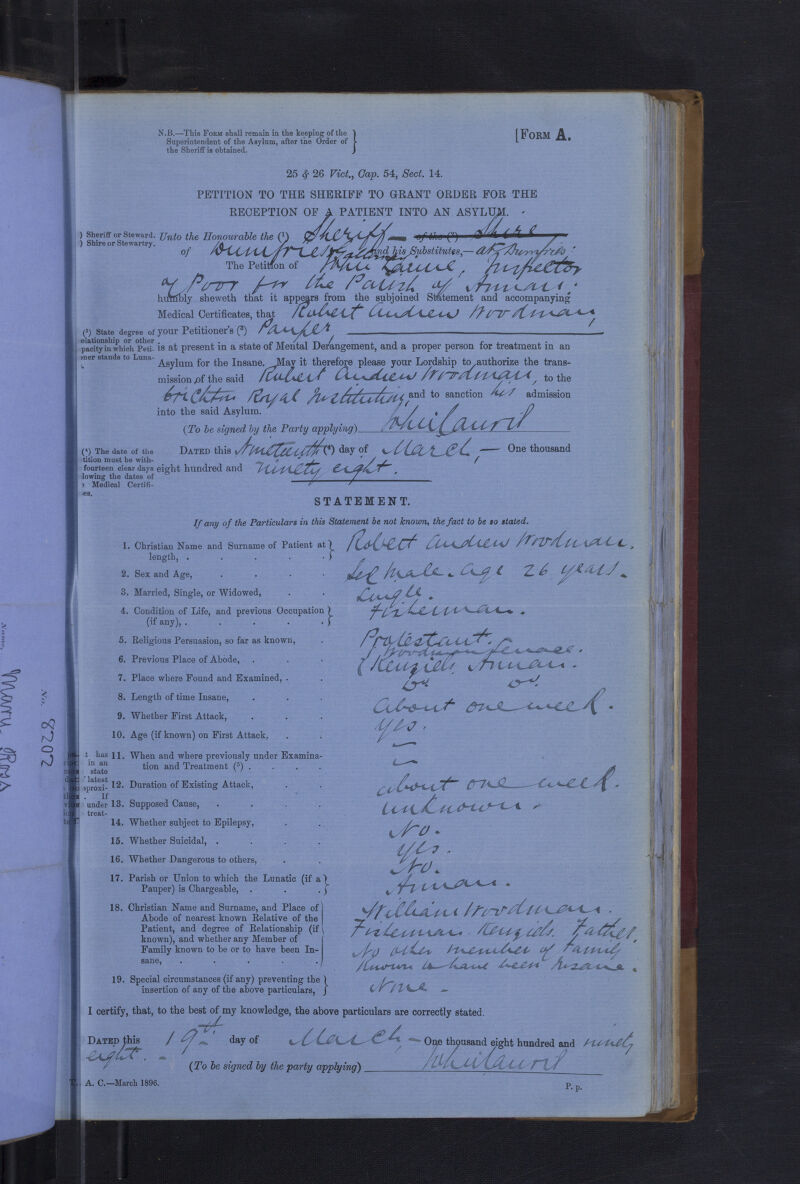 N.B.—This Form shall remain in the keeping of the
Superintendent of the Asylum, after the Order of
the Sheriff is obtained.
[Form A.
25 & 26 Vict., Cap. 54, Sect. 14.
PETITION TO THE SHERIFF TO GRANT ORDER FOR THE
RECEPTION OF A PATIENT INTO AN ASYLUM.
) Sheriff or Steward.
) Shire or Stewartry.
Unto the Honourable the (¹) Sheriff — of the (²) Shire
of Dumfries and his Substitutes,— at Dumfries:
The Petition of John Laurie, Inspector
of Poor for the Parish of Annan:
humbly sheweth that it appears from the subjoined Statement and accompanying
Medical Certificates, that Robert Andrew Woodman,
(³) State degree of
elationship or other
pacity in which Peti-
oner stands to Luna-
your Petitioner's (³) Pauper,
is at present in a state of Mental Derangement, and a proper person for treatment in an
Asylum for the Insane. May it therefore please your Lordship to authorize the trans-
mission of the said Robert Andrew Woodman, to the
Crichton Royal Institution, and to sanction his admission
into the said Asylum.
(To be signed by the Party applying) John Laurie
(⁴) The date of the
tition must be with-
fourteen clear days
lowing the dates of
e Medical Certifi-
es.
Dated this Nineteenth (⁴) day of March,— One thousand
eight hundred and ninety eight.
STATEMENT.
If any of the Particulars in this Statement be not known, the fact to be so stated.
1. Christian Name and Surname of Patient at length, . Robert Andrew Woodman.
2. Sex and Age, Male. Age 26 years.
3. Married, Single, or Widowed, Single.
4. Condition of Life, and previous Occupation (if any), . Fisherman.
5. Religious Persuasion, so far as known, Protestant.
6. Previous Place of Abode, . Woodman Terrace. Kenziels Annan.
7. Place where Found and Examined, . Do. Do.
8. Length of time Insane, About one week.
9. Whether First Attack, Yes.
10. Age (if known) on First Attack, —
11. When and where previously under Examination and Treatment (⁵) . —
12. Duration of Existing Attack, About one week.
13. Supposed Cause, . Unknown.
14. Whether subject to Epilepsy, No.
15. Whether Suicidal, . Yes.
16. Whether Dangerous to others, No.
17. Parish or Union to which the Lunatic (if a Pauper) is Chargeable, . Annan.
18. Christian Name and Surname, and Place of
Abode of nearest known Relative of the
Patient, and degree of Relationship (if
known), and whether any Member of
Family known to be or to have been In-
sane, .
William Woodman.
Fisherman. Kenziels. Father.
No other member of Family
known to have been Insane.
19. Special circumstances (if any) preventing the
insertion of any of the above particulars,
None —
t has
in an
state
latest
pproxi-
If
under
treat-
I certify, that, to the best of my knowledge, the above particulars are correctly stated.
Dated this 19th day of March,— One thousand eight hundred and ninety
eight.
(To be signed by the party applying) John Laurie
A. C.—March 1896.
P. p.
No. 8202
Name,